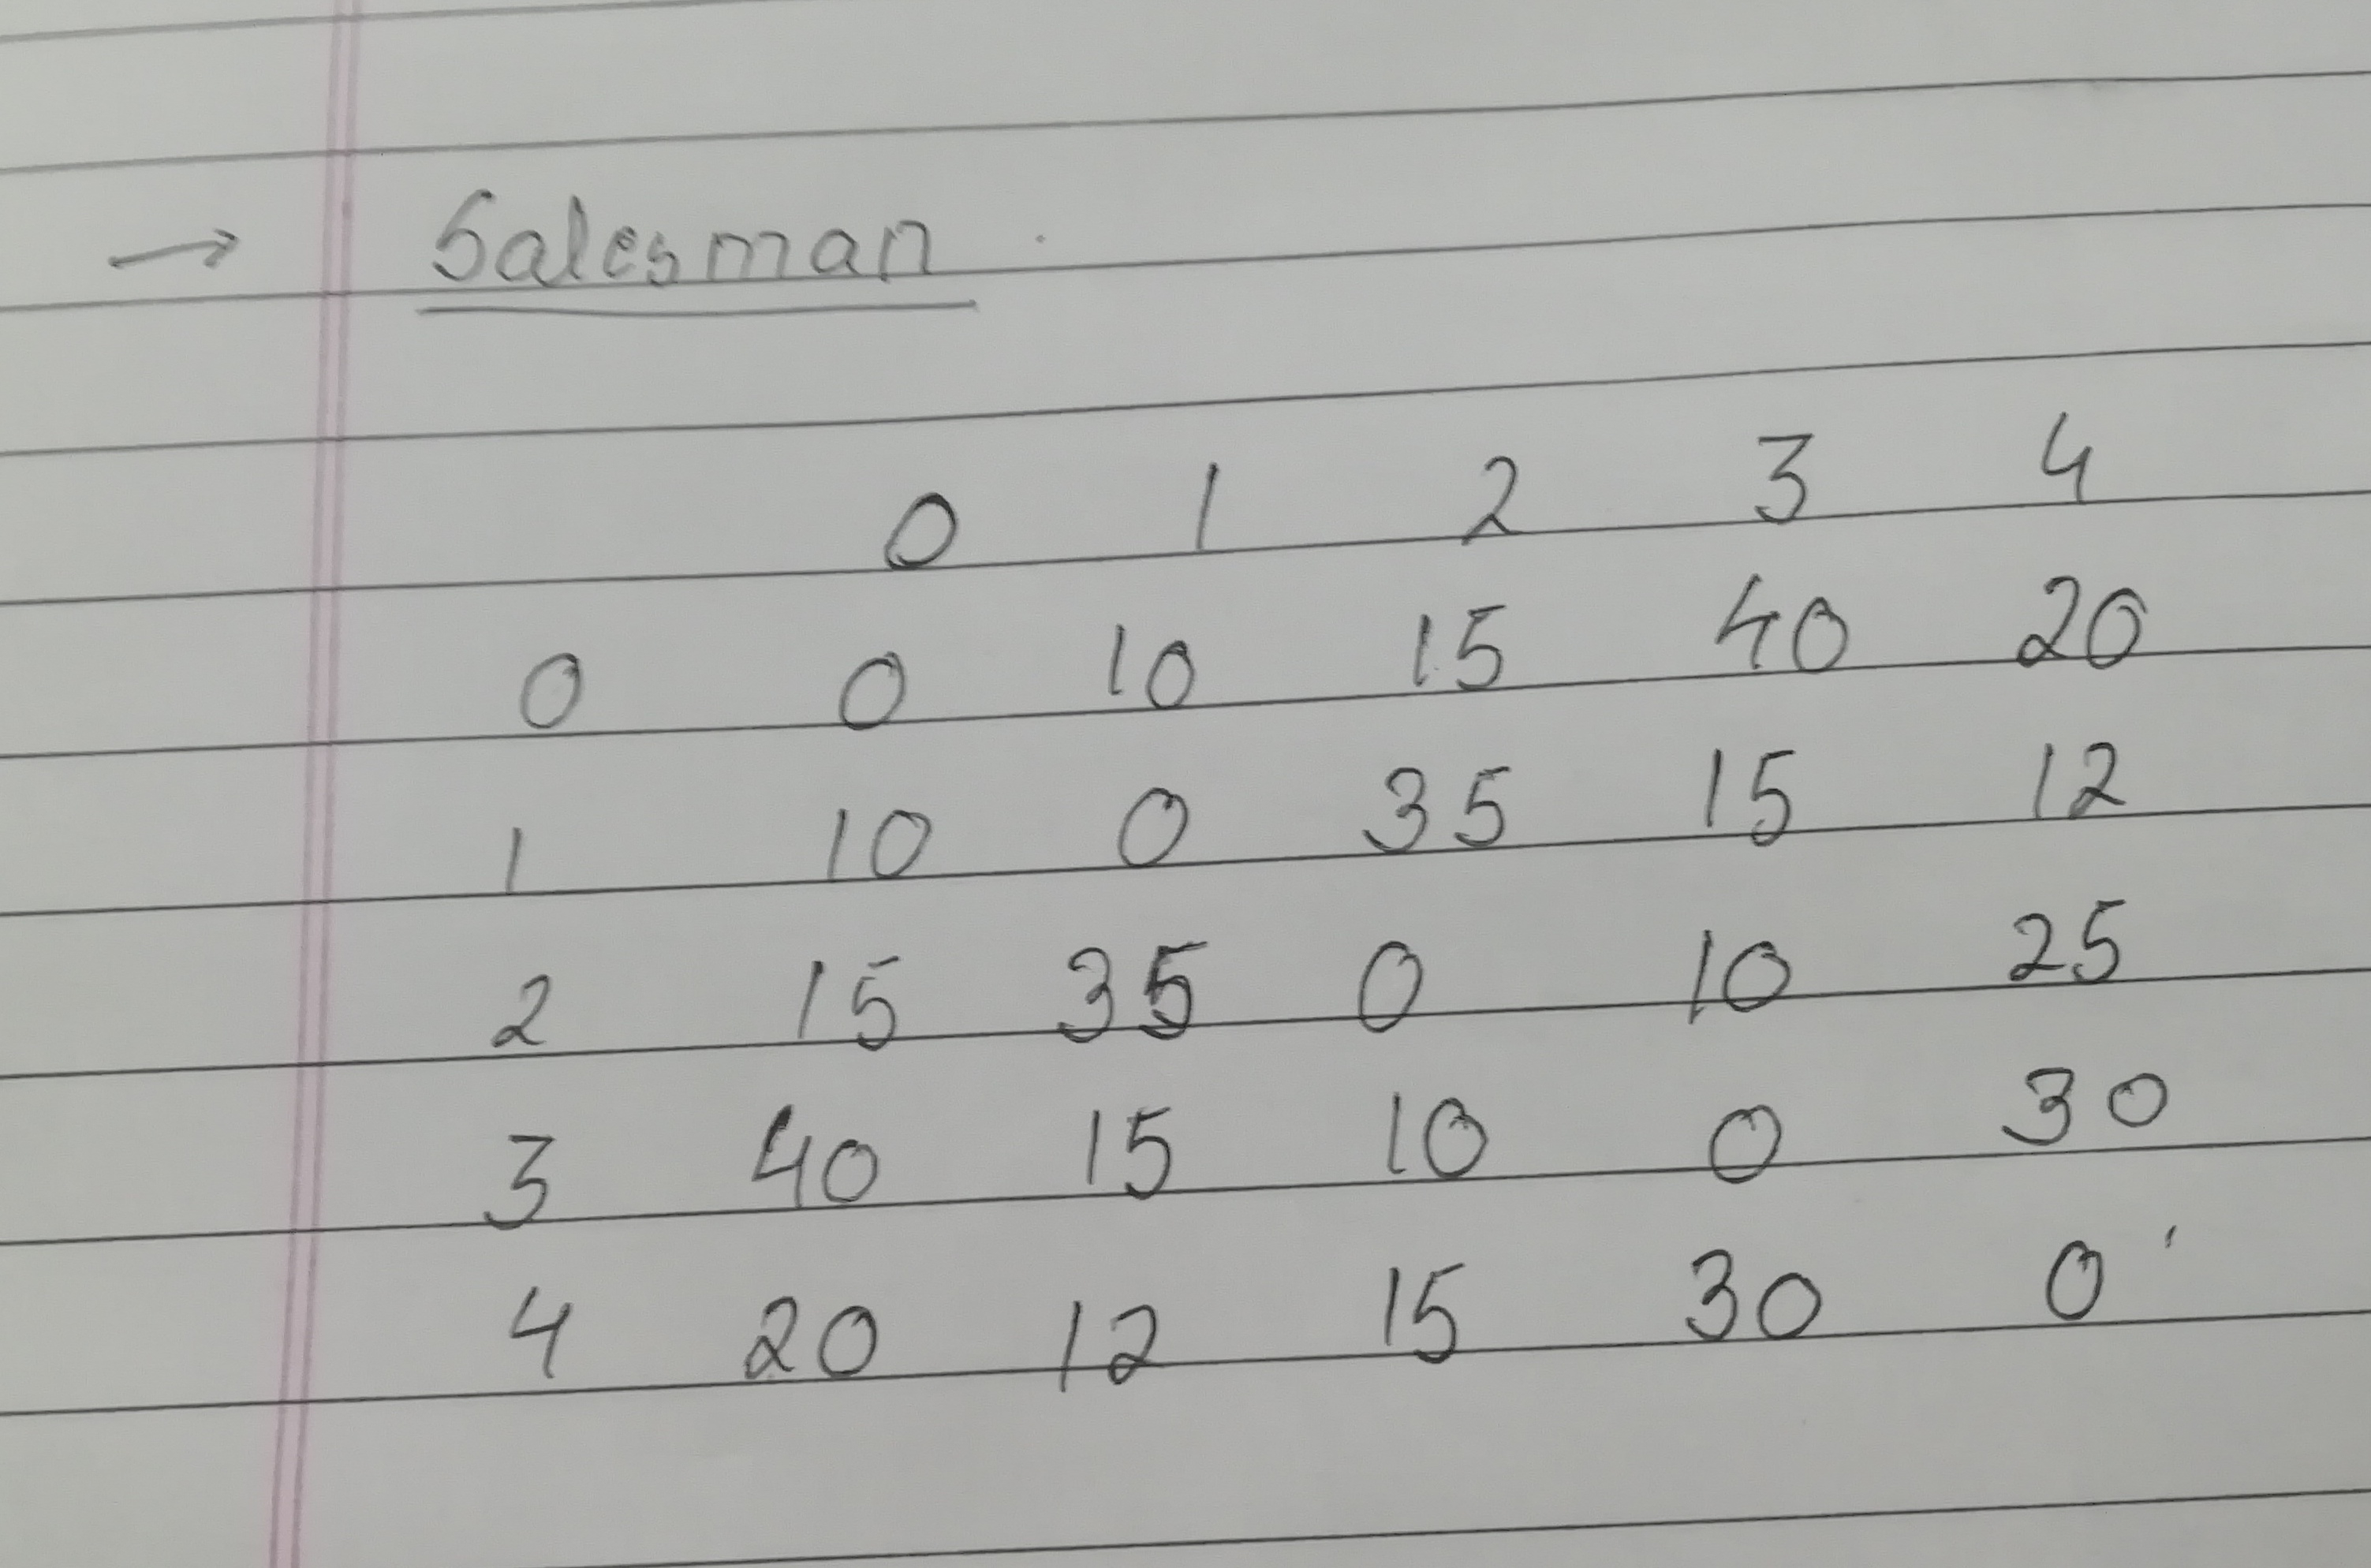 → Salesman
0 1 2 3 4
0 0 10 15 40 20
1 10 0 35 15 12
2 15 35 0 10 25
3 40 15 10 0 30
4 20 12 15 30 0